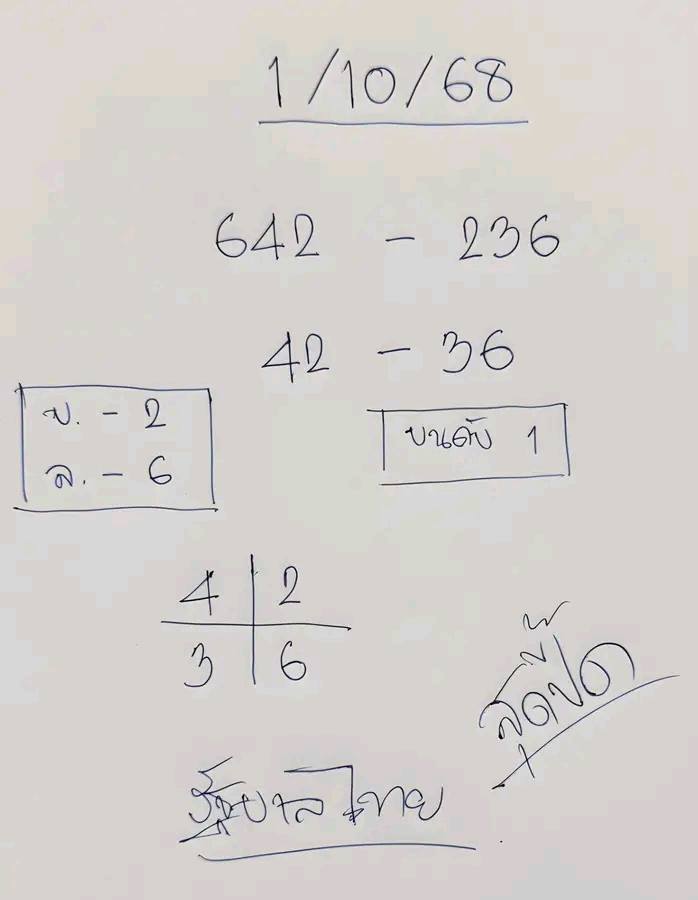 1/10/68
642 - 236
42 - 36
บ. - 2
ล. - 6
บนดับ 1
4 2
3 6
สุดปี๊ด
รัฐบาลไทย